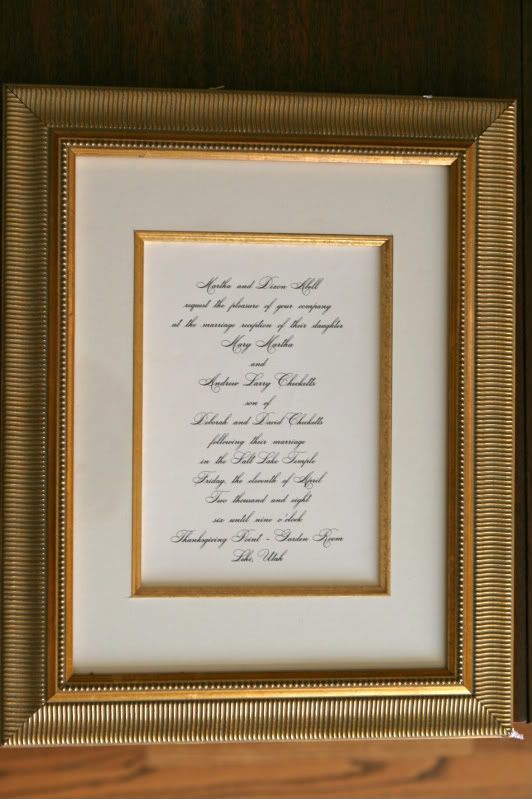 Martha and Dixon Abell
request the pleasure of your company
at the marriage reception of their daughter
Mary Martha
and
Andrew Larry Checketts
son of
Deborah and David Checketts
following their marriage
in the Salt Lake Temple
Friday, the eleventh of April
Two thousand and eight
six until nine o'clock
Thanksgiving Point - Garden Room
Lehi, Utah